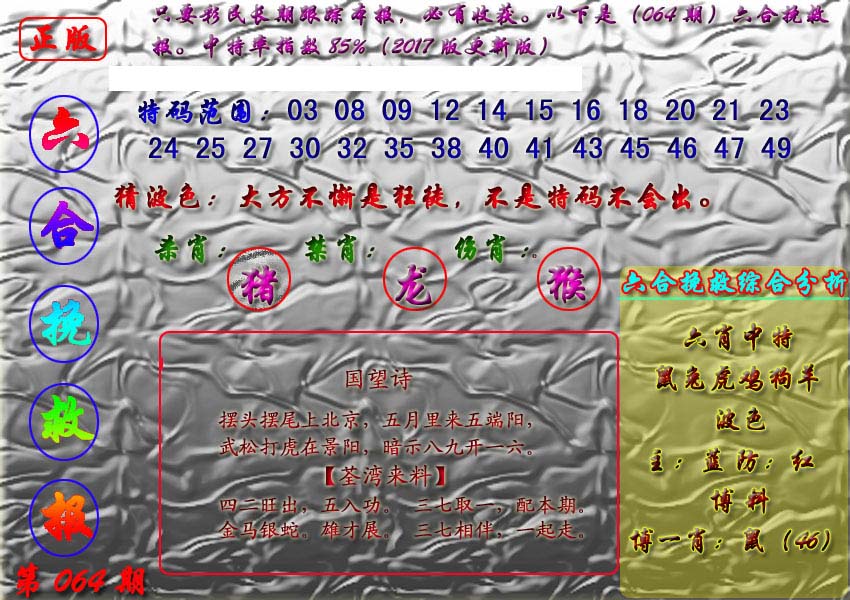 正版
只要彩民长期跟踪本报，必有收获。以下是（064期）六合挽救
报。中特率指数85%（2017版更新版）
六
合
挽
救
报
第064期
特码范围：03 08 09 12 14 15 16 18 20 21 23
24 25 27 30 32 35 38 40 41 43 45 46 47 49
猜波色：大方不惭是狂徒，不是特码不会出。
杀肖： 禁肖： 伤肖：。
猪 龙 猴
国望诗
摆头摆尾上北京，五月里来五端阳，
武松打虎在景阳，暗示八九开一六。
【荃湾来料】
四二旺出，五入功。 三七取一，配本期。
金马银蛇。雄才展。 三七相伴，一起走。
六合挽救综合分析
六肖中特
鼠兔虎鸡狗羊
波色
主：蓝防：红
博料
博一肖：鼠（46）